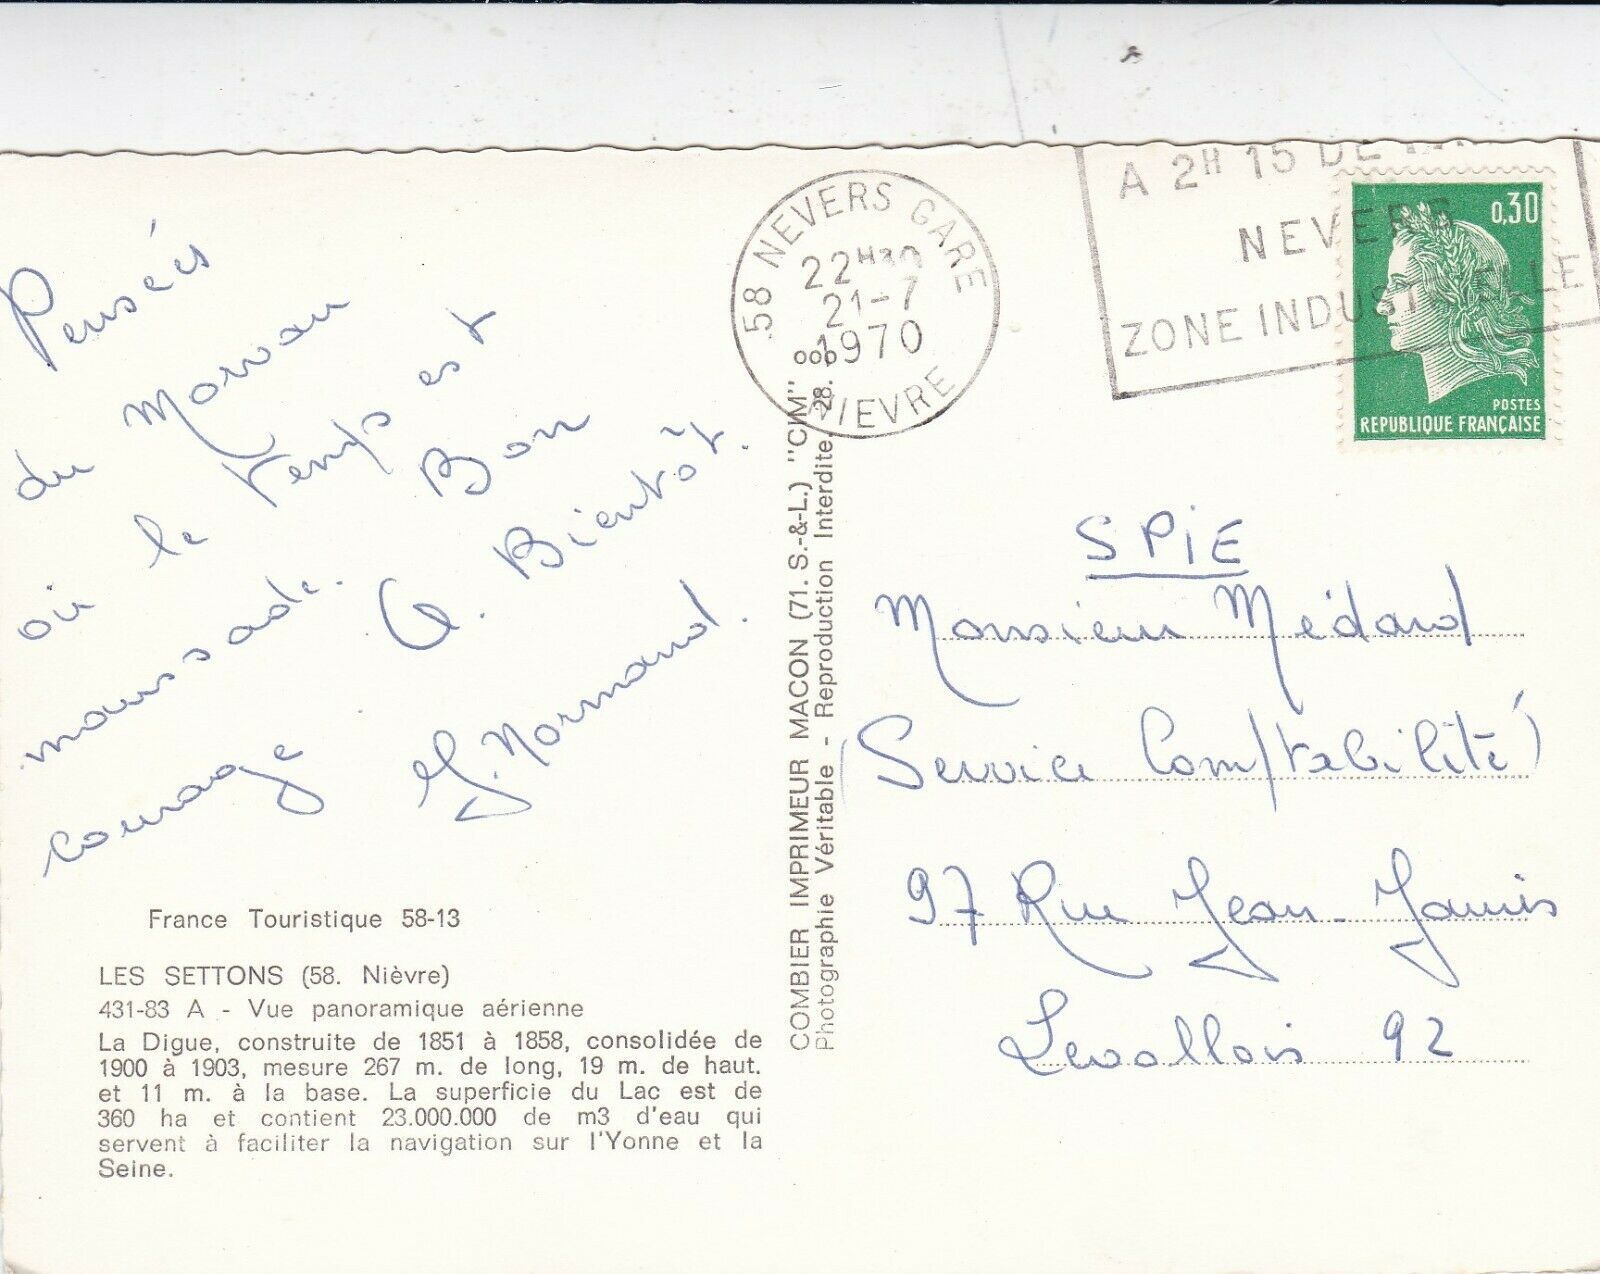 Pensées
du Morvan
où le temps est
maussade. Bon
courage
A. Bientôt.
J. Normand.
France Touristique 58-13
LES SETTONS (58. Nièvre)
431-83 A - Vue panoramique aérienne
La Digue, construite de 1851 à 1858, consolidée de
1900 à 1903, mesure 267 m. de long, 19 m. de haut.
et 11 m. à la base. La superficie du Lac est de
360 ha et contient 23.000.000 de m3 d'eau qui
servent à faciliter la navigation sur l'Yonne et la
Seine.
COMBIER IMPRIMEUR MACON (71. S.-&-L.) "CIM"
Photographie Véritable - Reproduction Interdite 28.
58 NEVERS GARE
22H30
21-7
1970
NIEVRE
A 2H 15 DE
NEVERS
ZONE INDUSTRIELLE
0,30
POSTES
REPUBLIQUE FRANÇAISE
SPIE
Monsieur Médard
(Service Comptabilité)
97 Rue Jean-Jaurès
Levallois 92